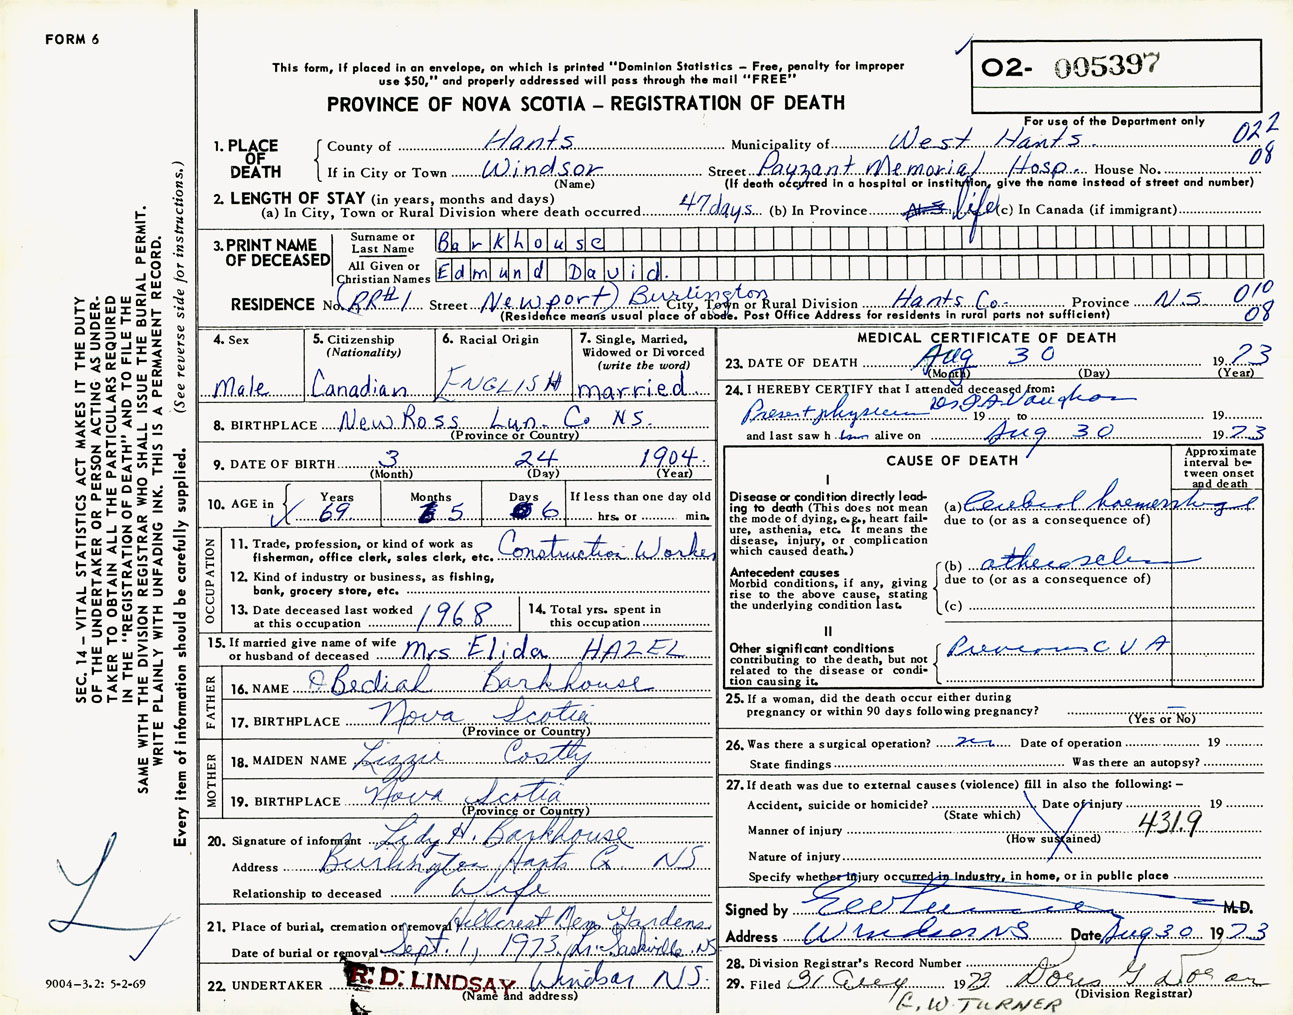 FORM 6
This form, if placed in an envelope, on which is printed "Dominion Statistics – Free, penalty for improper
use $50," and properly addressed will pass through the mail "FREE"
PROVINCE OF NOVA SCOTIA – REGISTRATION OF DEATH
O2- 005397
For use of the Department only
022
08
1. PLACE OF DEATH
County of Hants Municipality of West Hants
If in City or Town Windsor Street Payzant Memorial Hosp. House No.
(Name) (If death occurred in a hospital or institution, give the name instead of street and number)
2. LENGTH OF STAY (in years, months and days)
(a) In City, Town or Rural Division where death occurred 47 days (b) In Province N.S. life (c) In Canada (if immigrant)
3. PRINT NAME OF DECEASED
Surname or Last Name Barkhouse
All Given or Christian Names Edmund David.
RESIDENCE No. (RR#1 Street Newport) Burlington City, Town or Rural Division Hants Co. Province N.S. 010
(Residence means usual place of abode. Post Office Address for residents in rural parts not sufficient) 08
4. Sex
Male
5. Citizenship
(Nationality)
Canadian
6. Racial Origin
ENGLISH
7. Single, Married,
Widowed or Divorced
(write the word)
married
8. BIRTHPLACE New Ross Lun. Co NS.
(Province or Country)
9. DATE OF BIRTH 3 24 1904
(Month) (Day) (Year)
10. AGE in
Years Months Days If less than one day old
69 5 6 hrs. or min.
OCCUPATION
11. Trade, profession, or kind of work as
fisherman, office clerk, sales clerk, etc. Construction Worker
12. Kind of industry or business, as fishing,
bank, grocery store, etc.
13. Date deceased last worked
at this occupation 1968
14. Total yrs. spent in
this occupation
15. If married give name of wife
or husband of deceased Mrs Elida HAZEL
FATHER
16. NAME OBedial Barkhouse
17. BIRTHPLACE Nova Scotia
(Province or Country)
MOTHER
18. MAIDEN NAME Lizzie Costly
19. BIRTHPLACE Nova Scotia
(Province or Country)
20. Signature of informant Lidy H. Barkhouse
Address Burlington Hants Co. NS
Relationship to deceased Wife
21. Place of burial, cremation or removal Hillcrest Mem. Gardens
Date of burial or removal Sept. 1, 1973, L. Sackville NS
22. UNDERTAKER R. D. LINDSAY Windsor NS.
(Name and address)
MEDICAL CERTIFICATE OF DEATH
23. DATE OF DEATH Aug 30 1973
(Month) (Day) (Year)
24. I HEREBY CERTIFY that I attended deceased from:
Present physician 19 to 19
and last saw h im alive on Aug 30 1973
CAUSE OF DEATH
Approximate
interval be-
tween onset
and death
I
Disease or condition directly lead-
ing to death (This does not mean
the mode of dying, e.g., heart fail-
ure, asthenia, etc. It means the
disease, injury, or complication
which caused death.)
(a) Cerebral haemorrhage
due to (or as a consequence of)
Antecedent causes
Morbid conditions, if any, giving
rise to the above cause, stating
the underlying condition last.
(b)
due to (or as a consequence of)
(c)
II
Other significant conditions
contributing to the death, but not
related to the disease or condi-
tion causing it.
Previous C V A
25. If a woman, did the death occur either during
pregnancy or within 90 days following pregnancy? –
(Yes or No)
26. Was there a surgical operation? no Date of operation 19
State findings Was there an autopsy?
27. If death was due to external causes (violence) fill in also the following: –
Accident, suicide or homicide? Date of injury 19
(State which)
Manner of injury 431.9
(How sustained)
Nature of injury
Specify whether injury occurred in Industry, in home, or in public place
Signed by M.D.
Address Windsor NS Date Aug 30 1973
28. Division Registrar's Record Number
29. Filed 31 Aug 1973
(Division Registrar)
E. W. TURNER
SEC. 14 – VITAL STATISTICS ACT MAKES IT THE DUTY
OF THE UNDERTAKER OR PERSON ACTING AS UNDER-
TAKER TO OBTAIN ALL THE PARTICULARS REQUIRED
IN THE "REGISTRATION OF DEATH" AND TO FILE THE
SAME WITH THE DIVISION REGISTRAR WHO SHALL ISSUE THE BURIAL PERMIT.
WRITE PLAINLY WITH UNFADING INK. THIS IS A PERMANENT RECORD.
Every item of information should be carefully supplied. (See reverse side for instructions.)
9004-3.2: 5-2-69